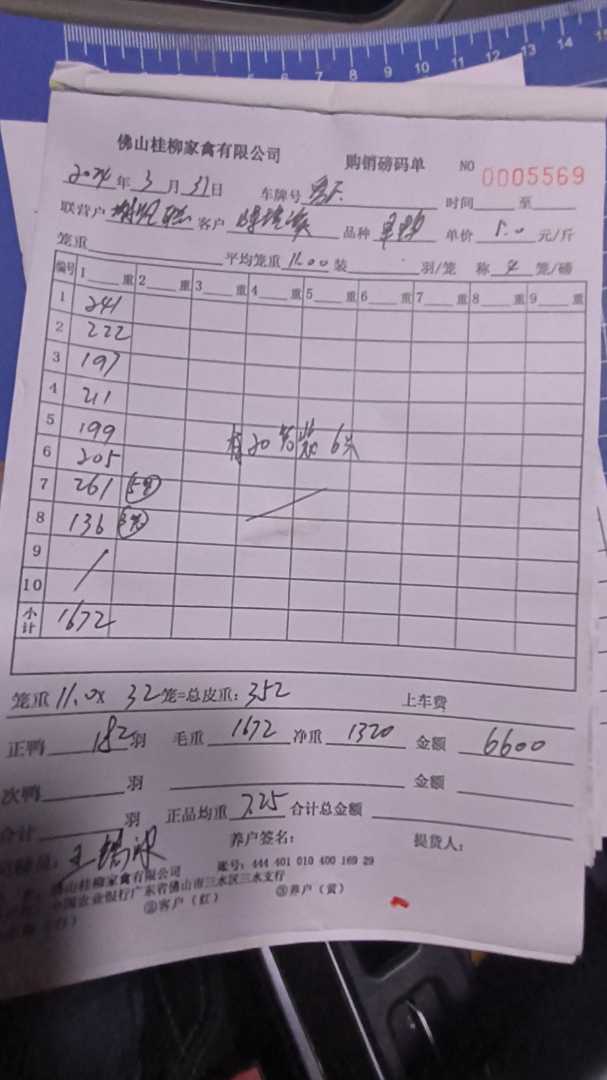 7 8 9 10 11 12 13 14 15
佛山桂柳家禽有限公司 购销磅码单 NO 0005569
2024年3月31日 车牌号 时间 至
联营户 客户 品种 单价 5.0 元/斤
笼重 平均笼重 11.00 装 羽/笼 称 4 笼/磅
编号 1 重 2 重 3 重 4 重 5 重 6 重 7 重 8 重 9 重
1 241
2 222
3 197
4 211
5 199
6 205 有20笼装6只
7 261 (5笼)
8 136 (3笼)
9
10
小计 1672
笼重 11.0x 32笼=总皮重:352 上车费
正鸭 182 羽 毛重 1672 净重 1320 金额 6600
次鸭 羽 金额
合计 羽 正品均重 7.25 合计总金额
员: 养户签名: 提货人:
佛山桂柳家禽有限公司 账号:444 401 010 400 169 29
中国农业银行广东省佛山市三水区三水支行
②客户(红) ③养户(黄)